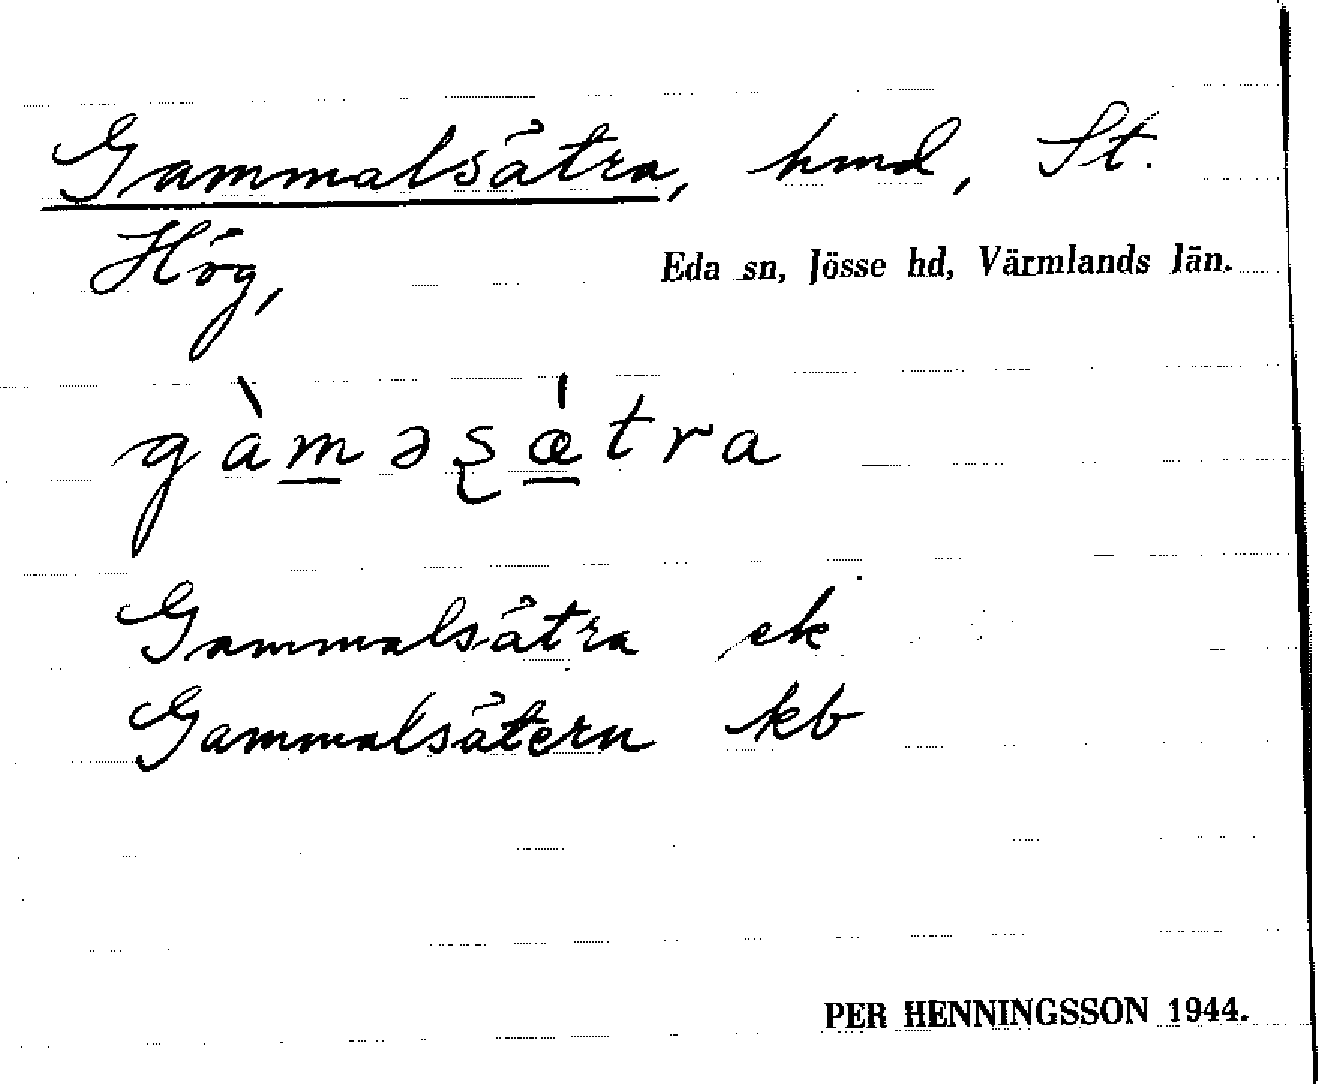 Gammalsätra, hmd, St.
Hög,
Eda sn, Jösse hd, Värmlands län.
gàməʂǽtra
Gammalsätra ek
Gammalsätern kb
PER HENNINGSSON 1944.